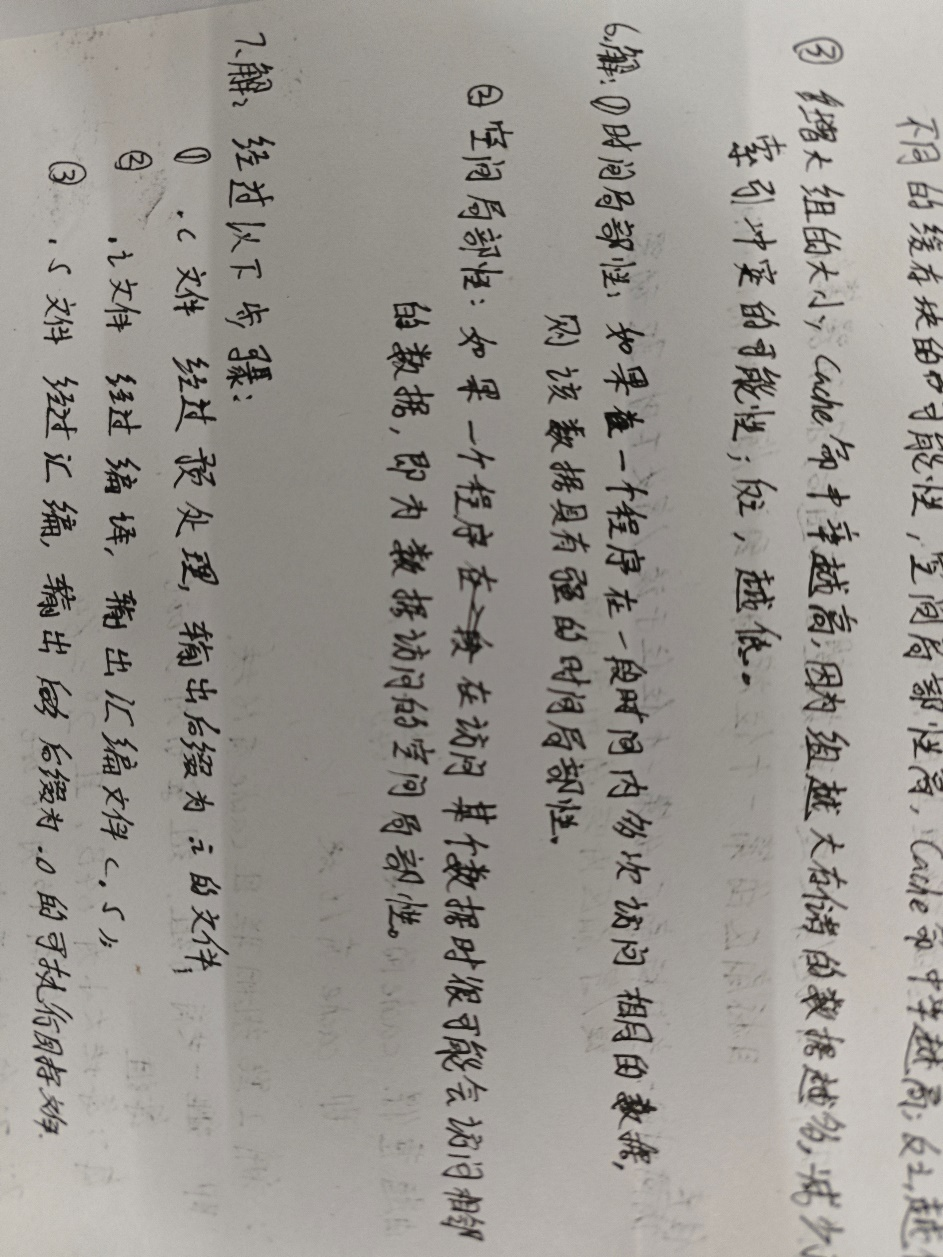 不同的缓存块的可能性，空间局部性高，Cache命中率越高；反之，越
③ 增大组的大小，Cache命中率越高，因为组越大存储的数据越多，减少
索引冲突的可能性；反之，越低。
6、解：①时间局部性：如果在一个程序在一段时间内多次访问相同的数据，
则该数据具有强的时间局部性。
②空间局部性：如果一个程序在访问某个数据时很可能会访问相邻
的数据，即为数据访问的空间局部性。
7、解：经过以下步骤：
① .c 文件 经过 预处理，输出后缀为 .i 的文件；
② .i 文件 经过 编译，输出汇编文件 (.s)；
③ .s 文件 经过汇编，输出后缀为 .o 的可执行目标